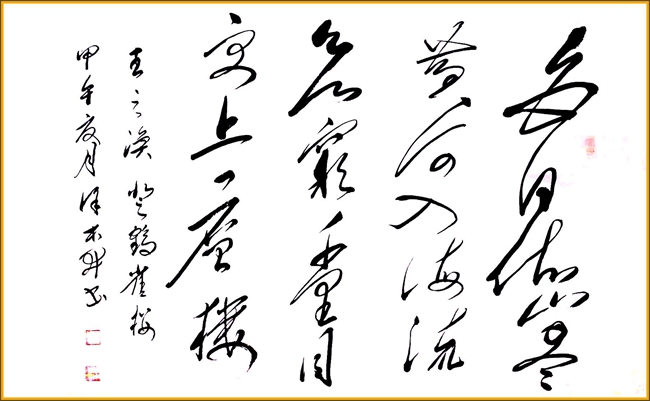 白日依山尽
黄河入海流
欲窮千里目
更上一層樓
王之涣 登鹳雀楼
甲午夏月 书